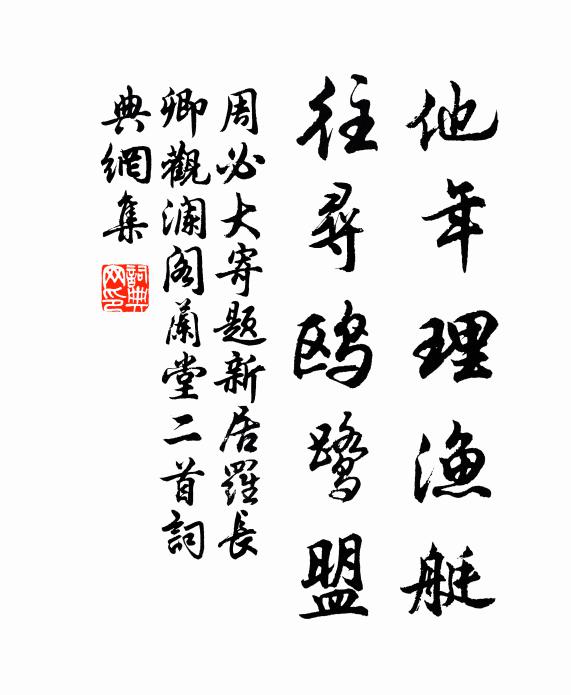 他年理漁艇
往尋鷗鷺盟
周必大寄題新居羅長
卿觀瀾閣蘭堂二首詞
典網集
詞典網印